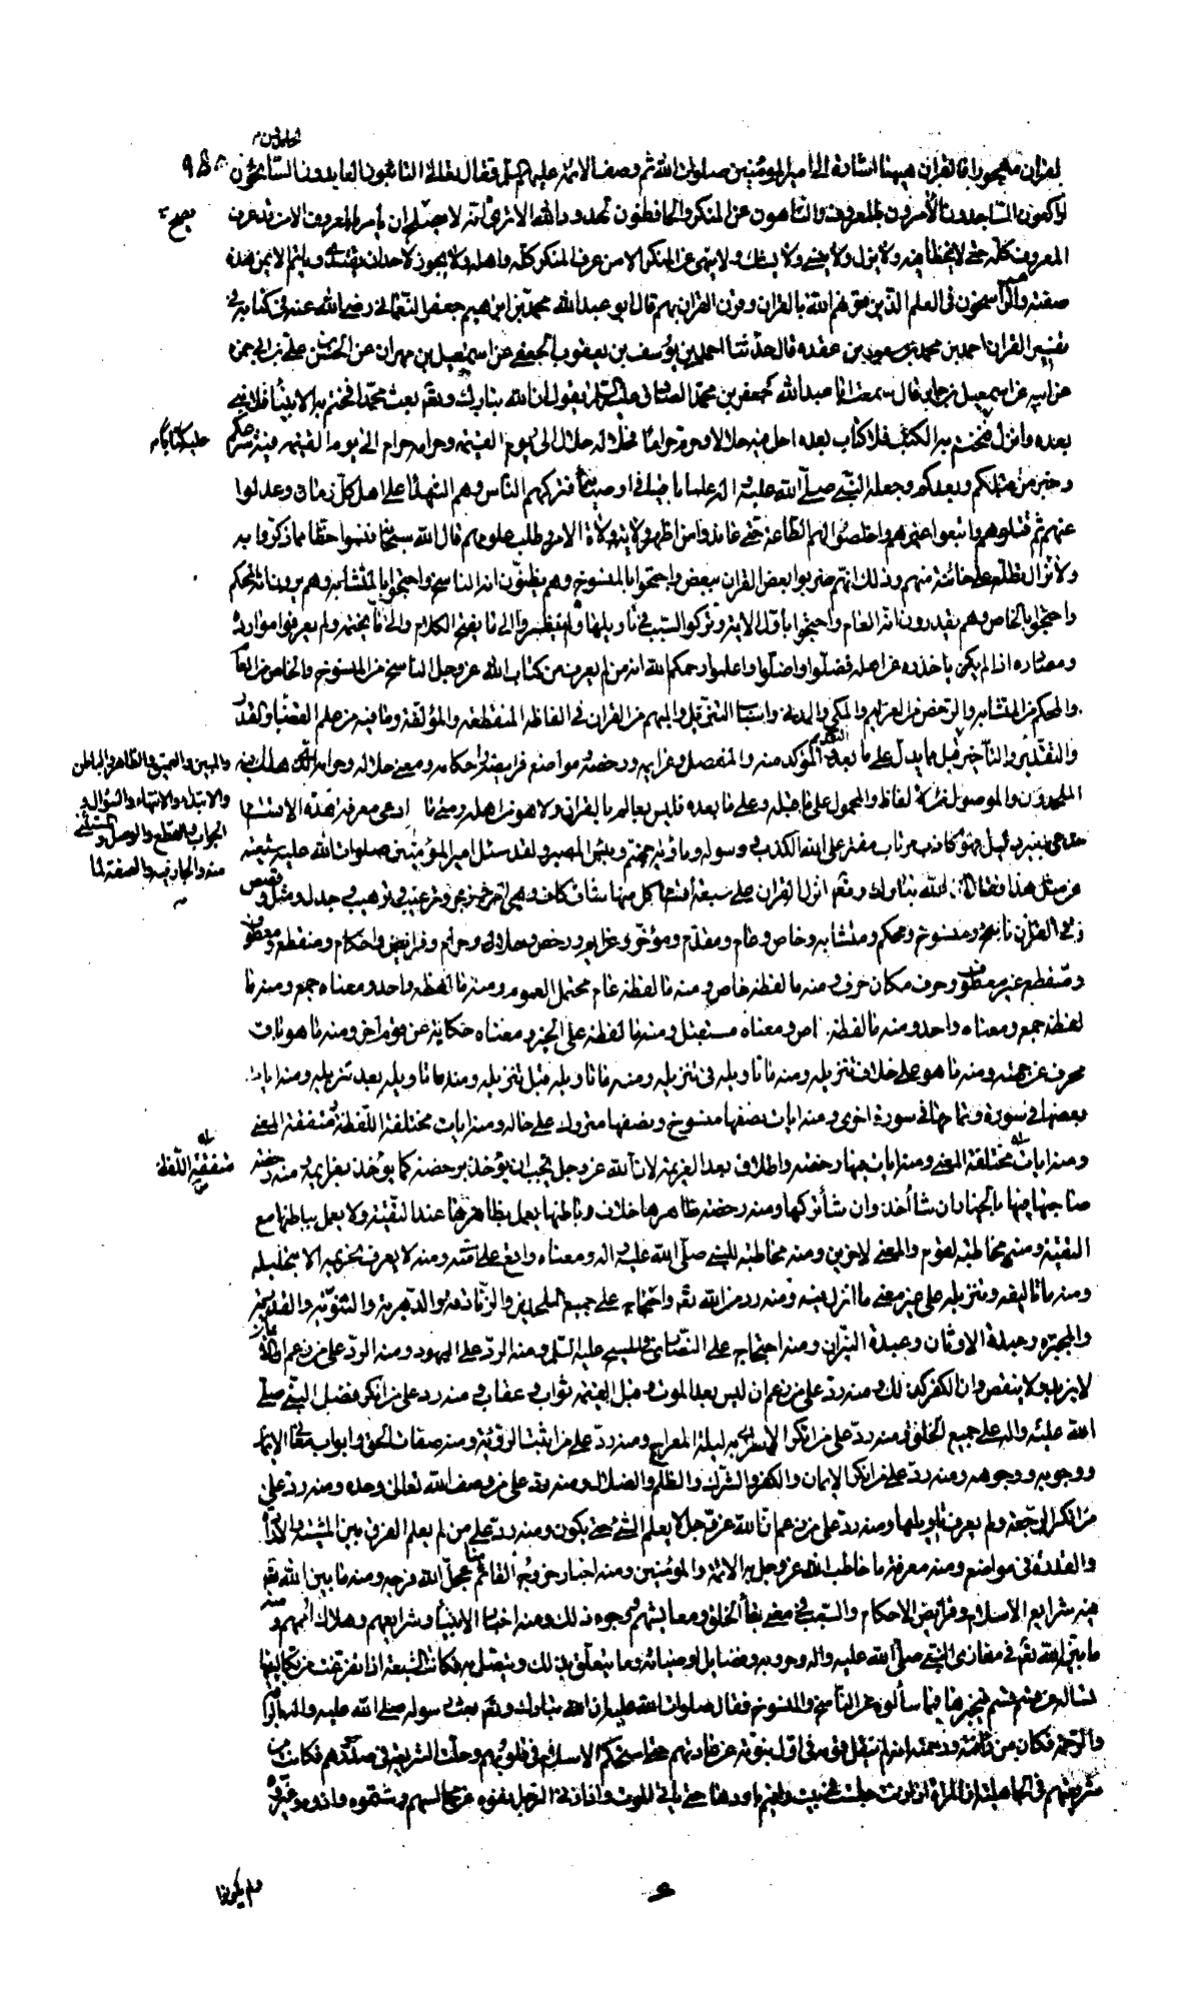 الحامدون
القران مهجورا فالقران هيهنا اشارة الى امير المؤمنين صلوات الله ثم وصف الائمة عليهم السلم فقال تعالى التائبون العابدون السائحون
الراكعون الساجدون الآمرون بالمعروف والناهون عن المنكر والحافظون لحدود الله الا ترى انه لا يصلح ان يأمر بالمعروف الا من قد عرف
المعروف كله حتى لا يخطأ فيه ولا يزل ولا ينسى ولا يشك ولا ينهى عن المنكر الا من عرف المنكر كله واهله ولا يجوز لاحد ان يقتدى ويأتم الا بمن هذه
صفته والراسخون في العلم الذين قرنهم الله بالقران وقرن القران بهم قال ابو عبد الله محمد بن ابرهيم جعفر النعمانى رضى الله عنه في كتابه في
تفسير القران احمد بن محمد بن سعيد بن عقده قال حدثنا احمد بن يوسف بن يعقوب الجعفى عن اسمعيل بن مهران عن الحسن بن على بن ابى حمزه
عن ابيه عن اسمعيل بن جابر قال سمعت ابا عبد الله جعفر بن محمد الصادق عليه السلام يقول ان الله تبارك وتعالى بعث محمدا فختم به الانبيآء فلا نبى
بعده وانزل فختم به الكتب فلا كتاب بعده احل فيه حلالا وحرم حراما فحلاله حلال الى يوم القيمة وحرامه حرام الى يوم القيمة فيه شرعكم
وخبر من قبلكم وبعدكم وجعله النبى صلى الله عليه واله علما باقيا في اوصيائه فتركهم الناس وهم الشهدآء على اهل كل زمان وعدلوا
عنهم ثم قتلوهم واتبعوا غيرهم واخلصوا لهم الطاعة حتى عاندوا من اظهر ولاية ولاة الامر وطلب علومهم قال الله سبحانه فنسوا حظا مما ذكروا به
ولا تزال تطلع على خائنة منهم وذلك انهم ضربوا بعض القران ببعض واحتجوا بالمنسوخ وهم يظنون انه الناسخ واحتجوا بالمتشابه وهم يرون انه المحكم
واحتجوا بالخاص وهم يقدرون انه العام واحتجوا باول الاية وتركوا السبب في تأويلها ولم ينظروا الى ما يفتح الكلام والى ما يختمه ولم يعرفوا موارده
ومصادره اذ لم يكن يأخذوه عن اهله فضلوا واضلوا واعلموا رحمكم الله انه من لم يعرف من كتاب الله عز وجل الناسخ من المنسوخ والخاص من العام
والمحكم من المتشابه والرخص من العزايم والمكى والمدنى واسباب التنزيل والمبهم من القران في الفاظه المنقطعة والمؤلفة وما فيه من علم القضآء والقدر
والتقديم والتأخير قبل ما يدل على ما بعده المؤكد منه والمفصل وعزايمه ورخصه ومواضع فرايضه واحكامه ومعنى حلاله وحرامه الذى هلك فيه
الملحدون والموصول من الالفاظ والمحمول على ما قبله وعلى ما بعده فليس بعالم بالقران ولا هو من اهله ومتى ما ادعى معرفة هذه الاقسام
مدعى بغير دليل فهو كاذب مرتاب مفتر على الله الكذب ورسوله ومأواه جهنم وبئس المصير ولقد سئل امير المؤمنين صلوات الله عليه شيعته
عن مثل هذا فقال ان الله تبارك وتعالى انزل القران على سبعة اقسام كل منها شاف كاف وهى امر وزجر وترغيب وترهيب وجدل ومثل وقصص
وفى القران ناسخ ومنسوخ ومحكم ومتشابه وخاص وعام ومقدم ومؤخر وعزايم ورخص وحلال وحرام وفرايض واحكام ومنقطع ومعطوف
ومنقطع غير معطوف وحرف مكان حرف ومنه ما لفظه خاص ومنه ما لفظه عام محتمل العموم ومنه ما لفظه واحد ومعناه جمع ومنه ما
لفظه جمع ومعناه واحد ومنه ما لفظه ماض ومعناه مستقبل ومنه ما لفظه على الخبر ومعناه حكاية عن قوم اخر ومنه ما هو باق
محرف عن جهته ومنه ما هو على خلاف تنزيله ومنه ما تاويله في تنزيله ومنه ما تاويله قبل تنزيله ومنه ما تاويله بعد تنزيله ومنه ايات
بعضها في سورة وتمامها في سورة اخرى ومنه ايات نصفها منسوخ ونصفها متروك على حاله ومنه ايات مختلفة اللفظ متفقة المعنى
ومنه ايات مختلفة المعنى ومنه ايات فيها رخصه واطلاق بعد العزيمة لان الله عز وجل يحب ان يؤخذ برخصه كما يؤخذ بعزايمه ومنه رخصه
صاحبها فيها بالخيار ان شآء اخذ وان شآء تركها ومنه رخصه ظاهرها خلاف باطنها يعمل بظاهرها عند التقية ولا يعمل بباطنها مع
التقية ومنه مخاطبة لقوم والمعنى لاخرين ومنه مخاطبة للنبى صلى الله عليه واله ومعناه واقع على امته ومنه لا يعرف تحريمه الا بتحليله
ومنه ما تاليفه وتنزيله على غير معنى ما انزل فيه ومنه رد من الله تعالى واحتجاج على جميع الملحدين والزنادقة والدهرية والثنوية والقدرية
والمجبره وعبدة الاوثان وعبدة النيران ومنه احتجاج على النصارى في المسيح عليه السلم ومنه الرد على اليهود ومنه الرد على من زعم ان الايمان
لا يزيد ولا ينقص وان الكفر كذلك ومنه رد على من زعم ان ليس بعد الموت وقبل القيمة ثواب وعقاب ومنه رد على من انكر فضل النبى صلى
الله عليه واله على جميع الخلق ومنه رد على من انكر الاسرآء به ليلة المعراج ومنه رد على من اثبت الرؤية ومنه صفات الحق وابواب معانى الايمان
ووجوبه ووجوهه ومنه رد على من انكر الايمان والكفر والشرك والظلم والضلال ومنه رد على من وصف الله تعالى وحده ومنه رد على
من انكر الرجعة ولم يعرف تاويلها ومنه رد على من زعم ان الله عز وجل لا يعلم الشىء حتى يكون ومنه رد على من لم يعلم الفرق بين المشية والارادة
والقدرة في مواضع ومنه معرفة ما خاطب الله عز وجل به الائمة والمؤمنين ومنه اخبار خروج القائم منا عجل الله فرجه ومنه ما بين الله تعالى
فيه شرايع الاسلام وفرايض الاحكام والسبب في معنى بقآء الخلق ومعايشهم ووجوه ذلك ومنه اخبار الانبيآء وشرايعهم وهلاك اممهم ومنه
ما بين الله تعالى في مغازى النبى صلى الله عليه واله وحروبه وفضايل اوصيائه وما يتعلق بذلك ويتصل به فكانت الشيعة اذا تفرغت من تكاليفها
تساله عن قسم قسم فيخبرها فيما سألوه عن الناسخ والمنسوخ فقال صلوات الله عليه ان الله تبارك وتعالى بعث رسوله صلى الله عليه واله بالرأفة
والرحمة فكان من رأفته ورحمته انه لم ينقل قومه في اول نبوته عن عادتهم حتى استحكم الاسلام في قلوبهم وحلت الشريعة في صدورهم فكانت من
شريعتهم في الجاهلية ان المرأة اذا زنت حبست في بيت واقيم باودها حتى ياتى الموت واذا زنى الرجل نفوه عن مجالسهم وشتموه واذوه وعيروه
عليكم كتابا
والمبين والعميق والظاهر والباطن
والابتداء والانتهاء والسؤال و
الجواب والقطع والوصل والمستثنى
منه والجارى فيه والصفة لما
متفقة اللفظ
ولم يكونوا